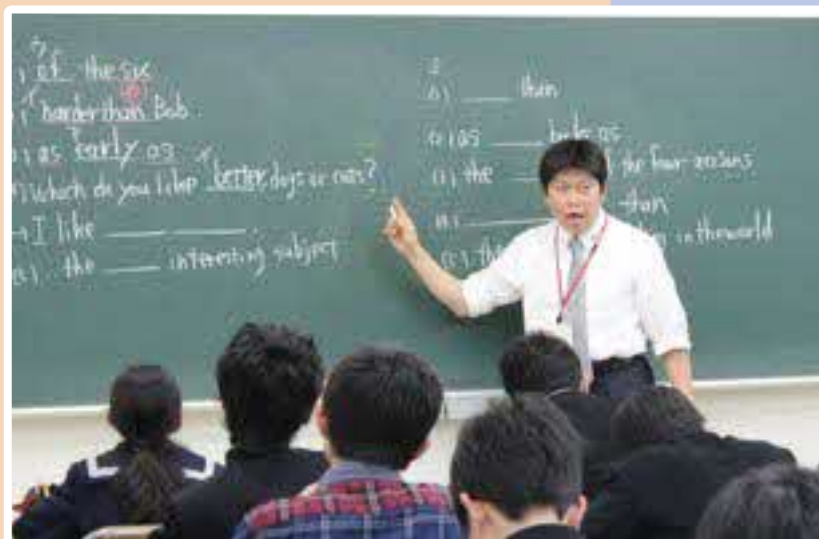 of the six
harder than Bob
as early as
Which do you like better, dogs or cats?
→ I like ____ ____.
the ____ interesting subject
2
(1) ____ than
as ____ as
the ____ the four seasons
____ than
in the world